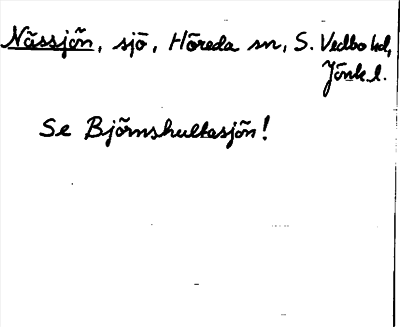 Nässjön, sjö, Höreda sn, S. Vedbo hd,
Jönk. l.
Se Björnshultasjön!